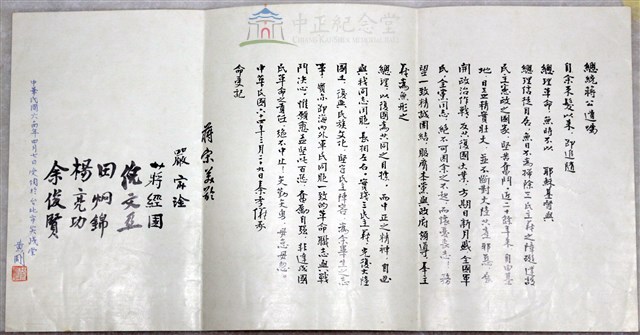 中正紀念堂
總統蔣公遺囑
自余束髮以來，即追隨
總理革命，無時不以耶穌基督與
總理信徒自居，無日不為掃除三民主義之障礙，建設
民主憲政之國家，堅苦奮鬥。近二十餘年來，自由基
地，日益精實壯大，並不斷對大陸共產邪惡，展
開政治作戰，反共復國大業，方期日新月盛，全國軍
民、全黨同志，絕不可因余之不起，而懷憂喪志，務
望一致精誠團結，服膺本黨與政府領導，奉主
義為無形之
總理，以復國為共同之目標，而中正之精神，自必
與我同志同胞，長相左右。實踐三民主義，光復大陸
國土，復興民族文化，堅守民主陣容，為余畢生之志
事，實亦即海內外軍民同胞一致的革命職志與戰
鬥決心。惟願愈益堅此百忍，奮勵自強，非達成國
民革命之責任，絕不中止！矢勤矢勇，毋怠毋忽。
中華民國六十四年三月二十九日秦孝儀承
命受記
蔣宋美齡
嚴家淦
蔣經國
倪文亞
田炯錦
楊亮功
余俊賢
中華民國六十四年四月七日 於台北市實踐堂